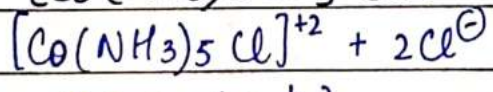 [Co(NH3)5 Cl]⁺² + 2Cl⊖